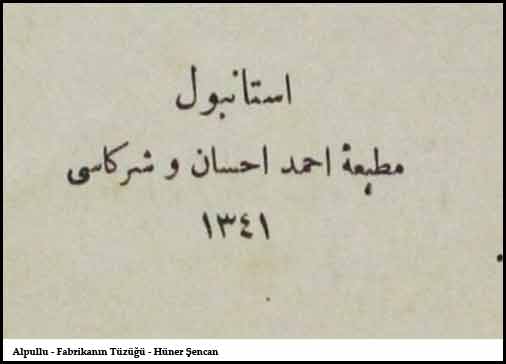 استانبول
مطبعهٔ احمد احسان و شركاسی
١٣٤١
Alpullu - Fabrikanın Tüzüğü - Hüner Şencan